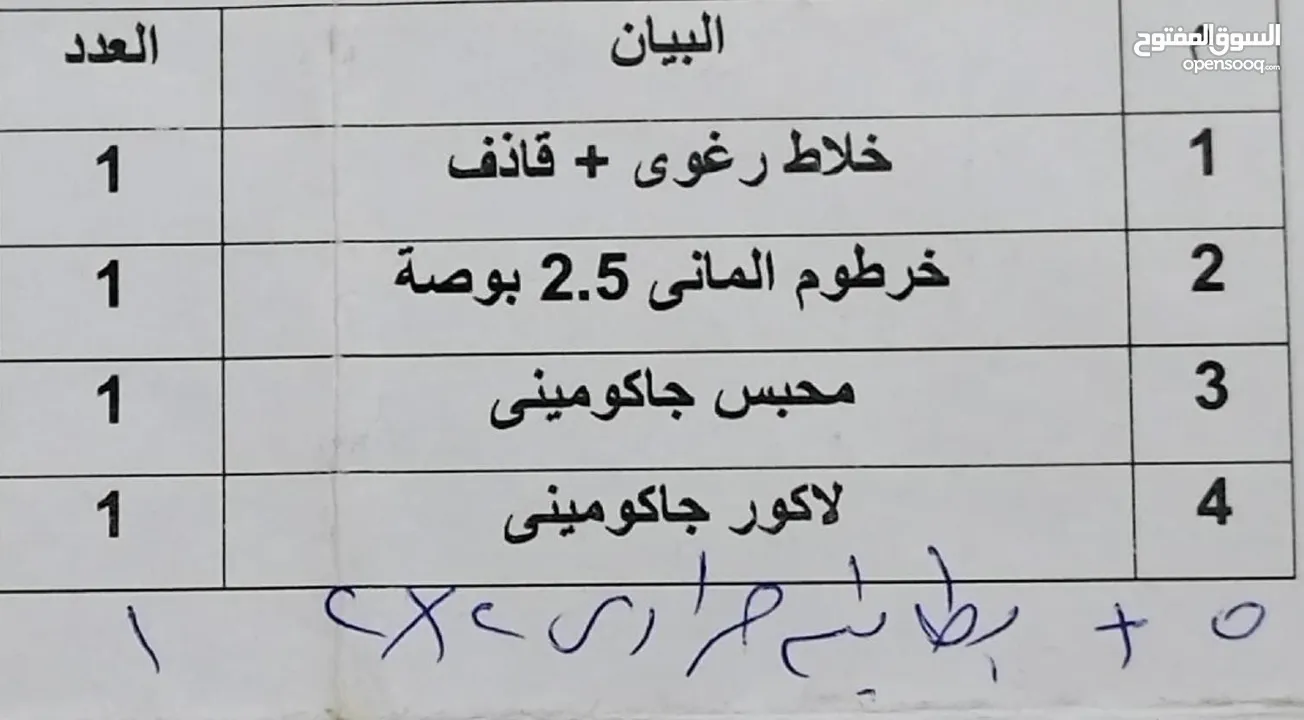 السوق المفتوح
opensooq.com
م البيان العدد
1 خلاط رغوى + قاذف 1
2 خرطوم المانى 2.5 بوصة 1
3 محبس جاكومينى 1
4 لاكور جاكومينى 1
٥ + بطانية حرارى ٢×٢ ١